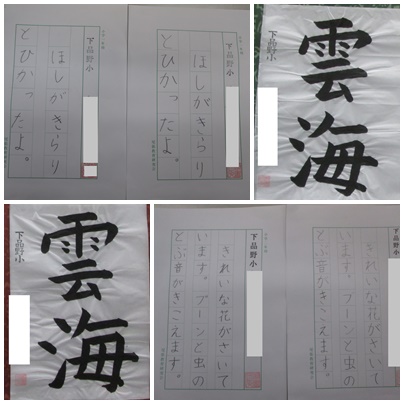 下品野小
ほしがきらり
とひかったよ。
下品野小
ほしがきらり
とひかったよ。
雲海
下品野小
雲海
下品野小
下品野小
きれいな花がさいて
います。ブーンと虫の
とぶ音がきこえます。
下品野小
きれいな花がさいて
います。ブーンと虫の
とぶ音がきこえます。